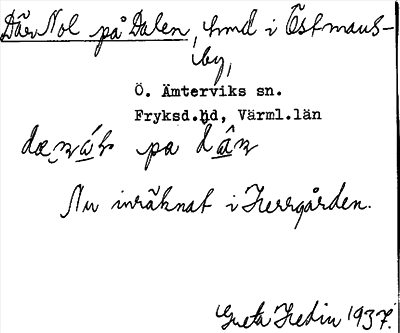 Där Nol på Dalen, hmd i Östmans-
by,
Ö. Ämterviks sn.
Fryksd. hd, Värml. län
på dân
Nu inräknat i Herrgården.
Greta Hedin 1937.